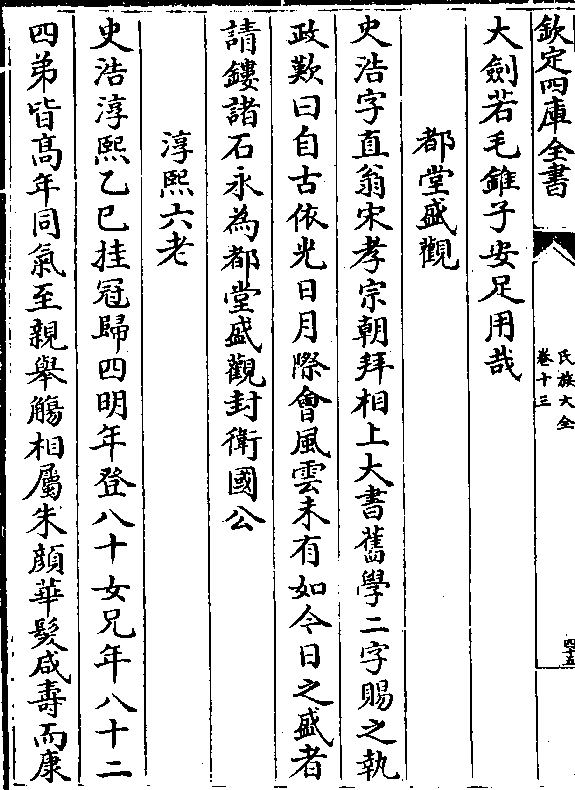 欽定四庫全書
民族大全
卷十三
四十五
大劍若毛錐子安足用哉
都堂盛觀
史浩字直翁宋孝宗朝拜相上大書舊學二字賜之執
政歎曰自古依光日月際會風雲未有如今日之盛者
請鏤諸石永為都堂盛觀封衛國公
淳熙六老
史浩淳熙乙巳挂冠歸四明年登八十女兄年八十二
四弟皆髙年同氣至親舉觴相屬朱顔華髮咸壽而康